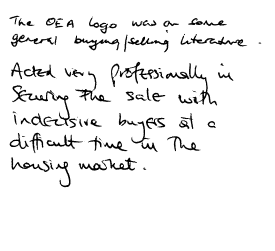 The OEA Logo was on some
general buying/selling literature.
Acted very professionally in
securing the sale with
indecisive buyers at a
difficult time in the
housing market.